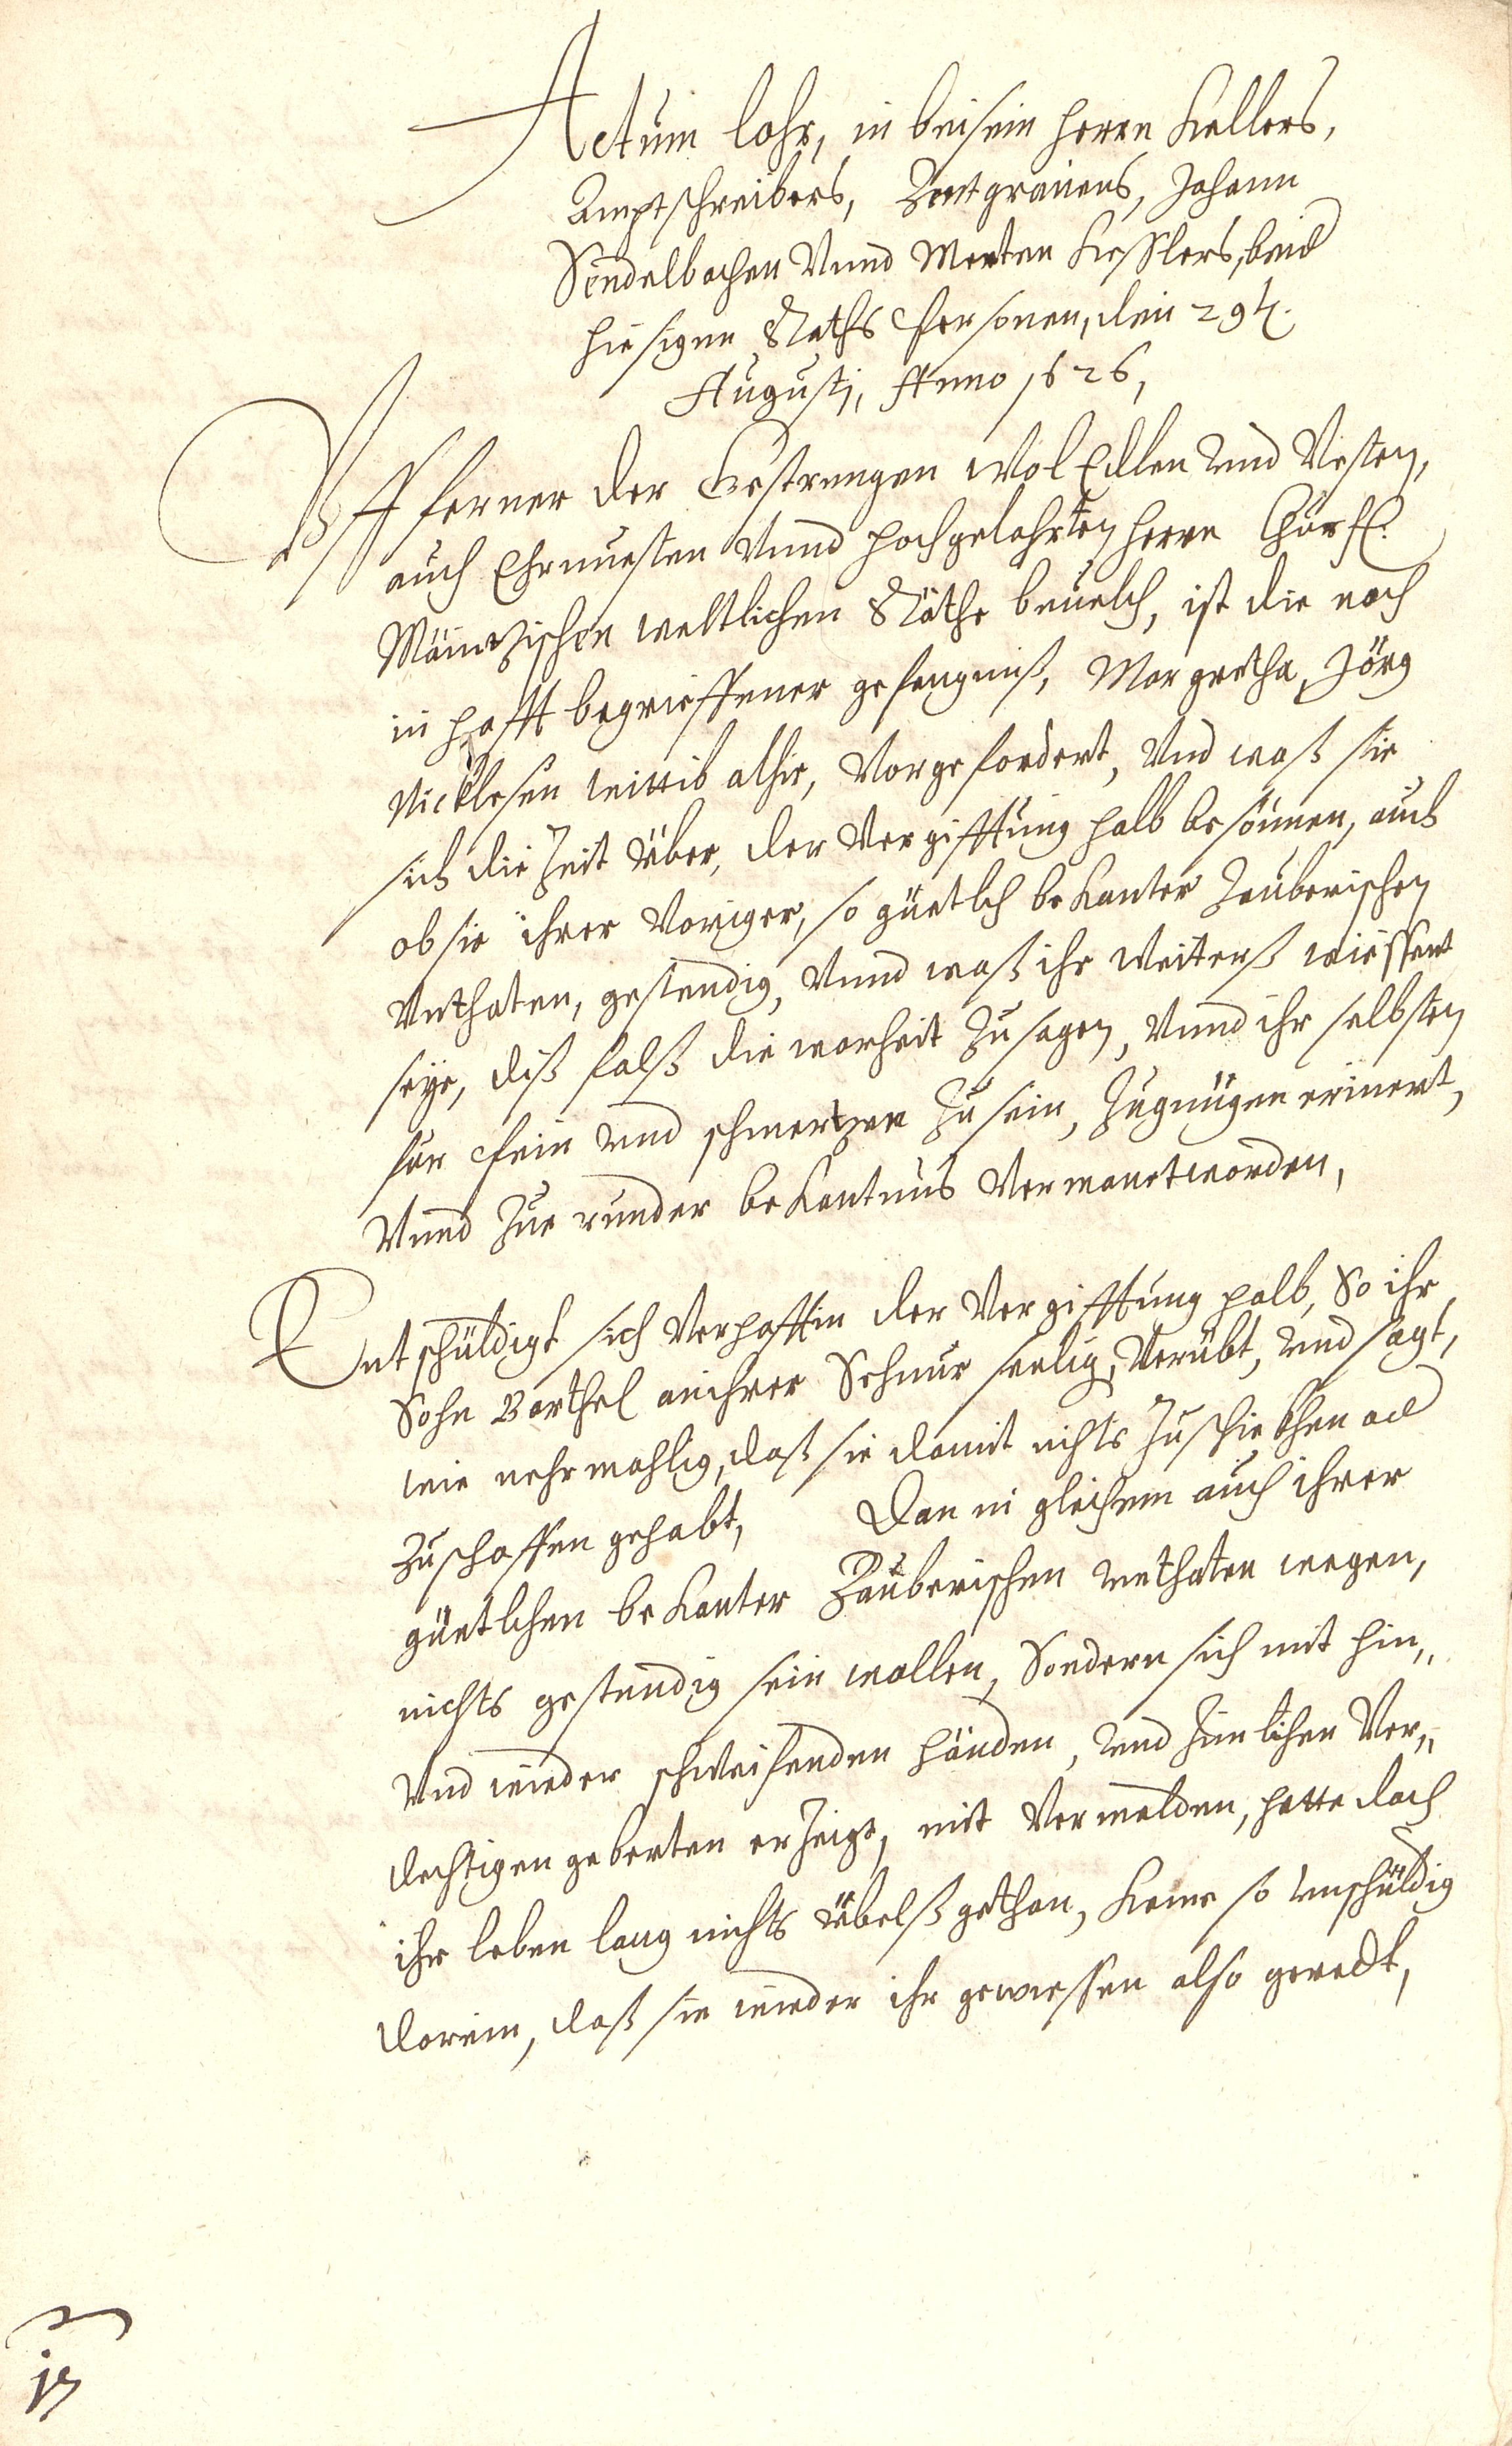 Actum Lohr, in beisein herrn Kellers,
Amptschreibers, Zentgrauens, Johann
Sendelbachen Vnnd Merten Kesslers, beid
hiesigen Raths Personen, den 29t.
Augustj, Anno 1626,
Vff ferner der Gestrengen Wol Edlen Vnd Vesten,
auch Ehrnuesten Vnnd hochgelahrten herrn Churf.
Mäintzischen weltlichen Räthe beuelch, ist die noch
in hafft begrieffener gefengnuß, Margretha, Jörg
Nicklesen wittib alhie, Vorgefordert, Vnd waß sie
sich die Zeit über, der Vergifftung halb besonnen, auch
ob sie ihrer Voriger, so güetlch bekanter Zauberischen
Vnthaten, gestendig, Vnnd waß ihr Weiterß wiessent
seye, diß falß die warheit Zu sagen, Vnnd ihr selbsten
für Pein vnd schmertzen Zu sein, Zugnügen erinnert,
Vnnd Zue runder bekantnus Vermanet worden,
Entschüldigt sich Verhafftin der Vergifftung halb, So ihr
Sohn Barthel an ihrer Schnur seelig, Verübt, vnd sagt,
wie nehrmahlig, daß sie damit nichts Zu schickhen od
Zuschaffen gehabt, Dan in gleichem auch ihrer
güetlichen bekanter Zauberischen vnthaten wegen,
nichts gestendig sein wollen, Sondern sich mit hin„
Vnd wieder schweifenden händen, vnd Zimlichen Ver„
dechtigen geberten erZeigt, mit Vermelden, hette doch
ihr leben lang nichts übelß gethan, Keme so vnschüldig
darein, daß sie wieder ihr gewiessen also geredt,